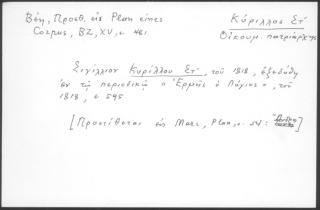 Βέη, Προσθ. εἰς Plan eines
Corpus, BZ, XV, σ 481
Κύριλλος Στ´
Οἰκουμ. πατριάρχης
Σιγίλλιον Κυρίλλου Στ´, τοῦ 1818, ἐξεδόθη
ἐν τῷ περιοδικῷ « Ἑρμῆς ὁ Λόγιος », τοῦ
1818, σ 595
[Προστίθεται εἰς Marc, Plan, σ. 54: